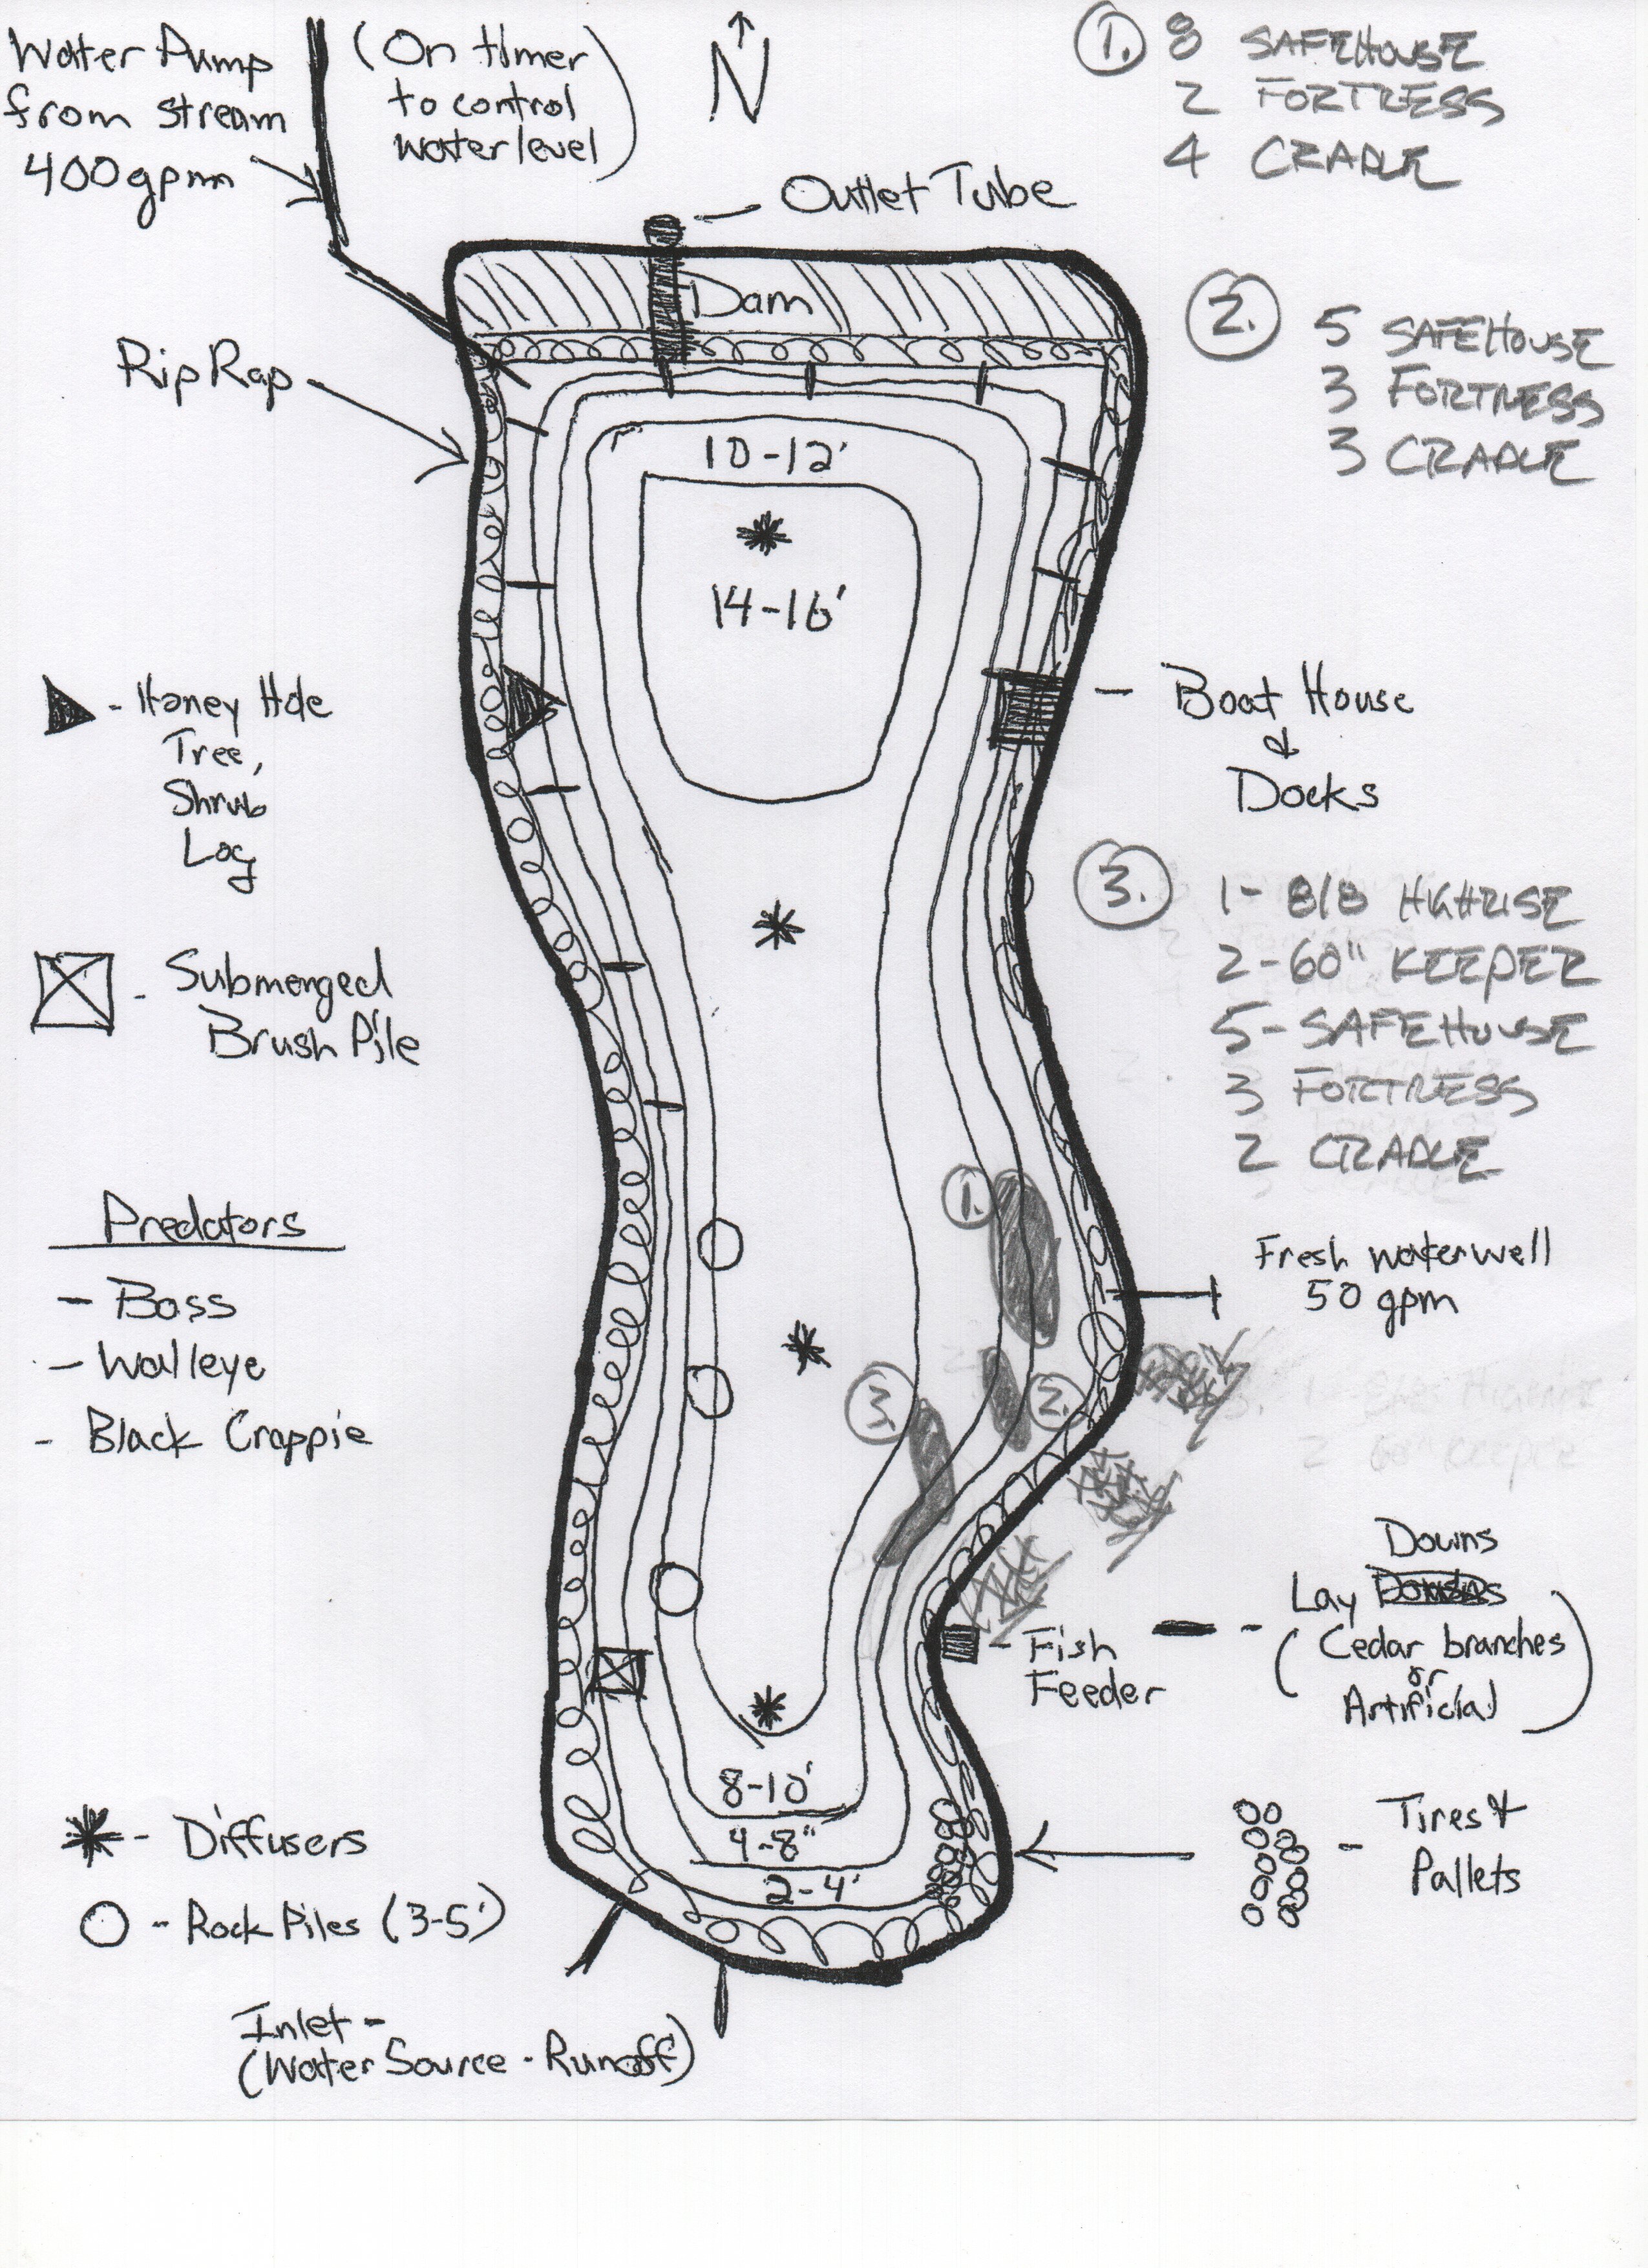 Water Pump
from stream
400gpm
(On timer
to control
water level)
N
1. 8 SAFEHOUSE
2 FORTRESS
4 CRADLE
Outlet Tube
Dam
2. 5 SAFEHOUSE
3 FORTRESS
3 CRADLE
Rip Rap
10-12'
14-16'
- Honey Hole
Tree,
Shrub
Log
- Boat House
&
Docks
3. 1- 8/8 HIGHRISE
2-60" KEEPER
5- SAFEHOUSE
3 FORTRESS
2 CRADLE
- Submerged
Brush Pile
Predators
- Bass
- Walleye
- Black Crappie
1.
Fresh water well
50 gpm
3.
2.
Downs
Lay
(Cedar branches
or
Artificial)
- Fish
Feeder
8-10'
4-8"
2-4'
- Diffusers
- Rock Piles (3-5')
- Tires &
Pallets
Inlet -
(Water Source - Runoff)